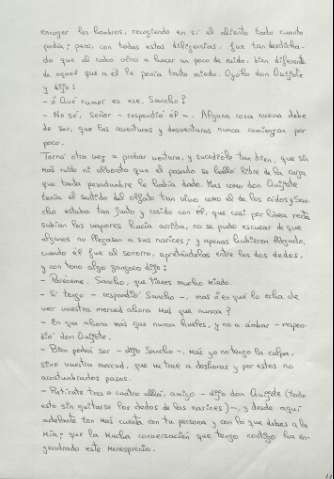 encoger los hombros, recogiendo en sí el aliento todo cuanto
podía; pero, con todas estas diligencias, fue tan desdicha-
do que al cabo vino a hacer un poco de ruido, bien diferente
de aquel que a él le ponía tanto miedo. Oyólo don Quijote
y dijo:
- ¿Qué rumor es ese, Sancho?
- No sé, señor - respondió él -. Alguna cosa nueva debe
de ser, que las aventuras y desventuras nunca comienzan por
poco.
Tornó otra vez a probar ventura, y sucedióle tan bien, que sin
más ruido ni alboroto que el pasado se halló libre de la carga
que tanta pesadumbre le había dado. Mas como don Quijote
tenía el sentido del olfato tan vivo como el de los oídos y San-
cho estaba tan junto y cosido con él, que casi por línea recta
subían los vapores hacia arriba, no se pudo excusar de que
algunos no llegasen a sus narices; y apenas hubieron llegado,
cuando él fue al socorro, apretándolas entre los dos dedos,
y con tono algo gangoso dijo:
- Paréceme, Sancho, que tienes mucho miedo.
- Sí tengo - respondió Sancho -, mas ¿en qué lo echa de
ver vuestra merced ahora más que nunca?
- En que ahora más que nunca hueles, y no a ámbar - respon-
dió don Quijote.
- Bien podrá ser - dijo Sancho -, mas yo no tengo la culpa,
sino vuestra merced, que me trae a deshoras y por estos no
acostumbrados pasos.
- Retírate tres o cuatro allá, amigo - dijo don Quijote (todo
esto sin quitarse los dedos de las narices) -, y desde aquí
adelante ten más cuenta con tu persona y con lo que debes a la
mía; que la mucha conversación que tengo contigo ha en-
gendrado este menosprecio.